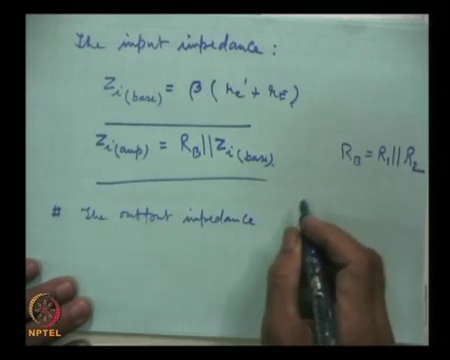 The input impedance :
Zi(base) = β ( re' + rE )
Zi(amp) = RB || Zi(base).
RB = R1 || R2
# The output impedance
NPTEL